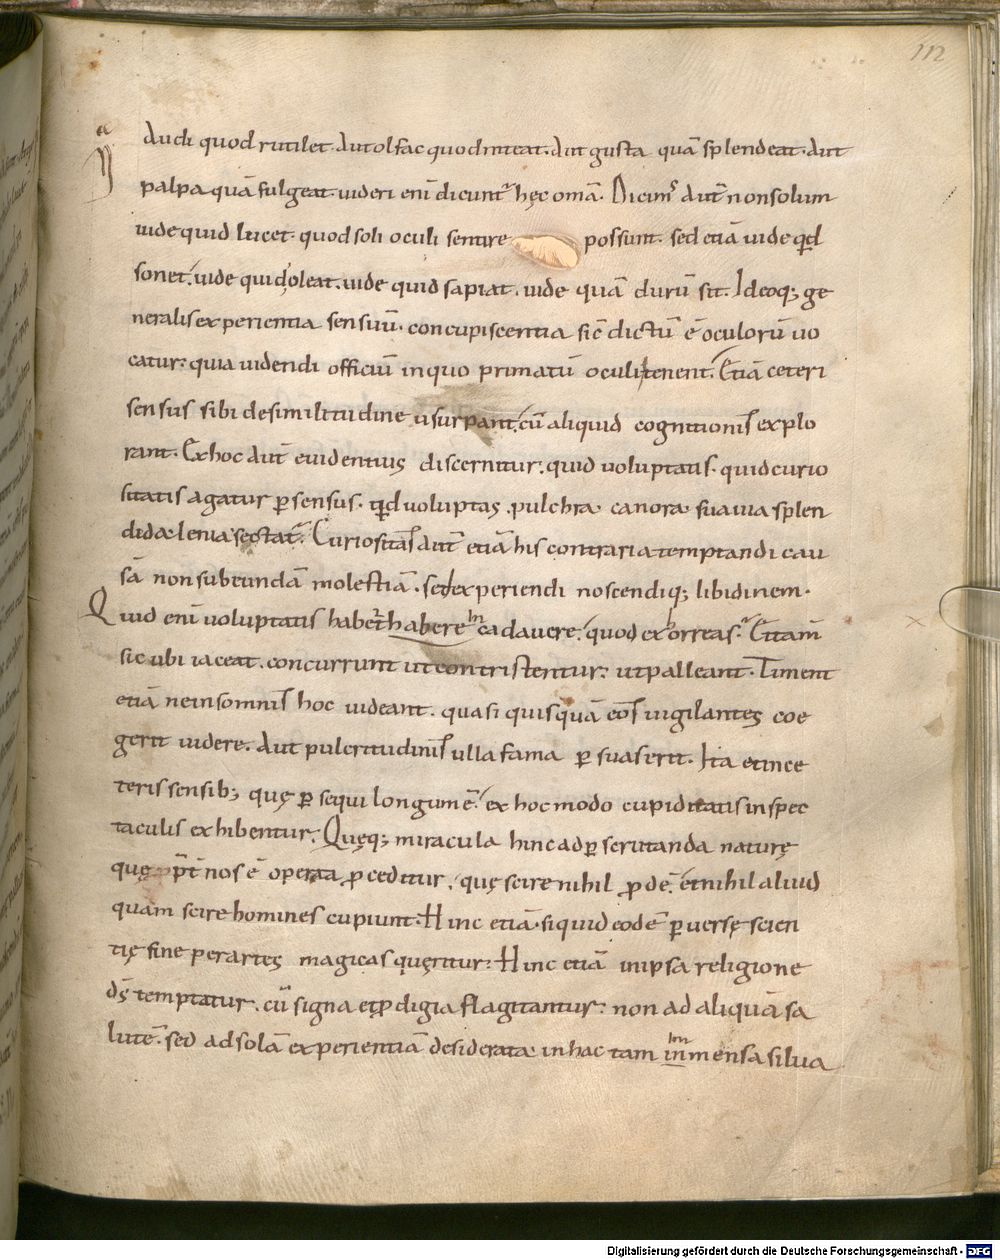 112
Audi quod rutilet. Aut olfac quod niteat. Aut gusta quā splendeat. Aut
palpa quā fulgeat. uideri enī dicunt᷑ hęc omā. Dicim᷒ aut̄ non solum
uide quid lucet. quod soli oculi sentire possunt. sed etiā uide qd̄
sonet. uide quid oleat. uide quid sapiat. uide quā durū sit. Ideoq; ge
neralis experientia sensuū. concupiscentia sic̄ dictū ē oculorū uo
catur. quia uidendi officiū in quo primatū oculi tenent. Etiā ceteri
sensus sibi de similitudine usurpant. cū aliquid cognitionis explo
rant. Ex hoc aut̄ euidentius discernitur. quid uoluptatis. quid curio
sitatis agatur ꝑ sensus. qd̄ uoluptas. pulchra canora suauia splen
dida lenia sectat᷑. Curiositas aut̄ etiā his contraria temptandi cau
sā non subeundā molestiā. sed experiendi noscendiq; libidinem.
Quid enī uoluptatis habet habere in cadauere. quod exhorreas. Et tam̄
sicubi iaceat. concurrunt ut contristentur. ut palleant. Timent
etiā ne in somnis hoc uideant. quasi quisquā eos uigilantes coe
gerit uidere. Aut pulcritudinis ulla fama ꝑsuaserit. Ita et in ce
teris sensib; quę ꝑsequi longum ē. ex hoc modo cupiditatis in spec
taculis exhibentur. Quęq; miracula hinc ad ꝑscrutanda naturę
quę p̄t̄ nos ē operata ꝓceditur. quę scire nihil ꝓdē. et nihil aliud
quam scire homines cupiunt. Hinc etiā. si quid eodē ꝑuersę scien
tię fine per artes magicas quęritur. Hinc etiā in ipsa religione
ds̄ temptatur. cū signa et ꝓdigia flagitantur. non ad aliquā sa
lutē. sed ad solā experientiā desiderata in hac tam im inmensa silua
Digitalisierung gefördert durch die Deutsche Forschungsgemeinschaft - DFG